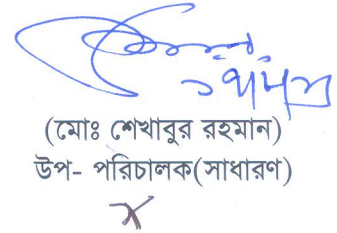 (মোঃ শেখাবুর রহমান)
উপ- পরিচালক(সাধারণ)